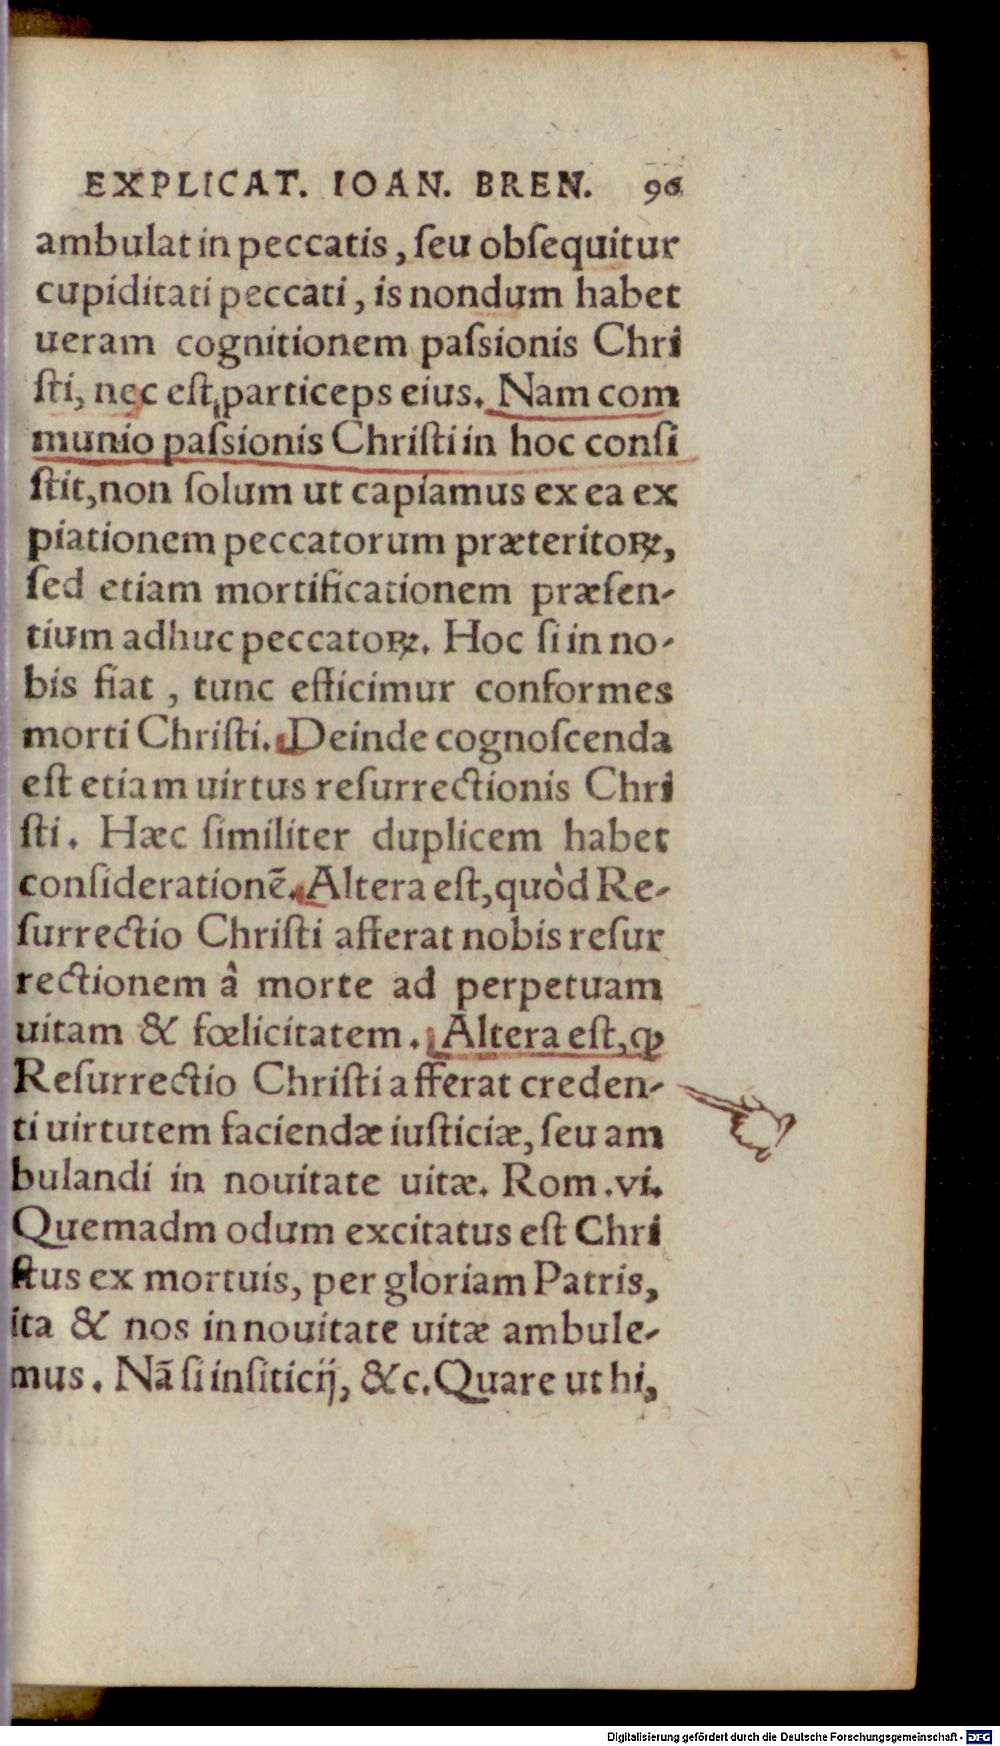 EXPLICAT. IOAN. BREN. 96
ambulat in peccatis, ſeu obſequitur
cupiditati peccati, is nondum habet
ueram cognitionem paſsionis Chri
ſti, nec eſt particeps eius. Nam com
munio paſsionis Chriſti in hoc conſi
ſtit, non ſolum ut capiamus ex ea ex
piationem peccatorum præteritoꝝ,
ſed etiam mortificationem præſen-
tium adhuc peccatoꝝ. Hoc ſi in no-
bis fiat, tunc efficimur conformes
morti Chriſti. Deinde cognoſcenda
eſt etiam uirtus reſurrectionis Chri
ſti. Hæc ſimiliter duplicem habet
conſiderationē. Altera eſt, quòd Re-
ſurrectio Chriſti afferat nobis reſur
rectionem à morte ad perpetuam
uitam & fœlicitatem. Altera eſt, ꝙ
Reſurrectio Chriſti afferat creden-
ti uirtutem faciendæ iuſticiæ, ſeu am
bulandi in nouitate uitæ. Rom. vi.
Quemadmodum excitatus eſt Chri
ſtus ex mortuis, per gloriam Patris,
ita & nos in nouitate uitæ ambule-
mus. Nā ſi inſiticij, &c. Quare ut hi,
Digitalisierung gefördert durch die Deutsche Forschungsgemeinschaft - DFG